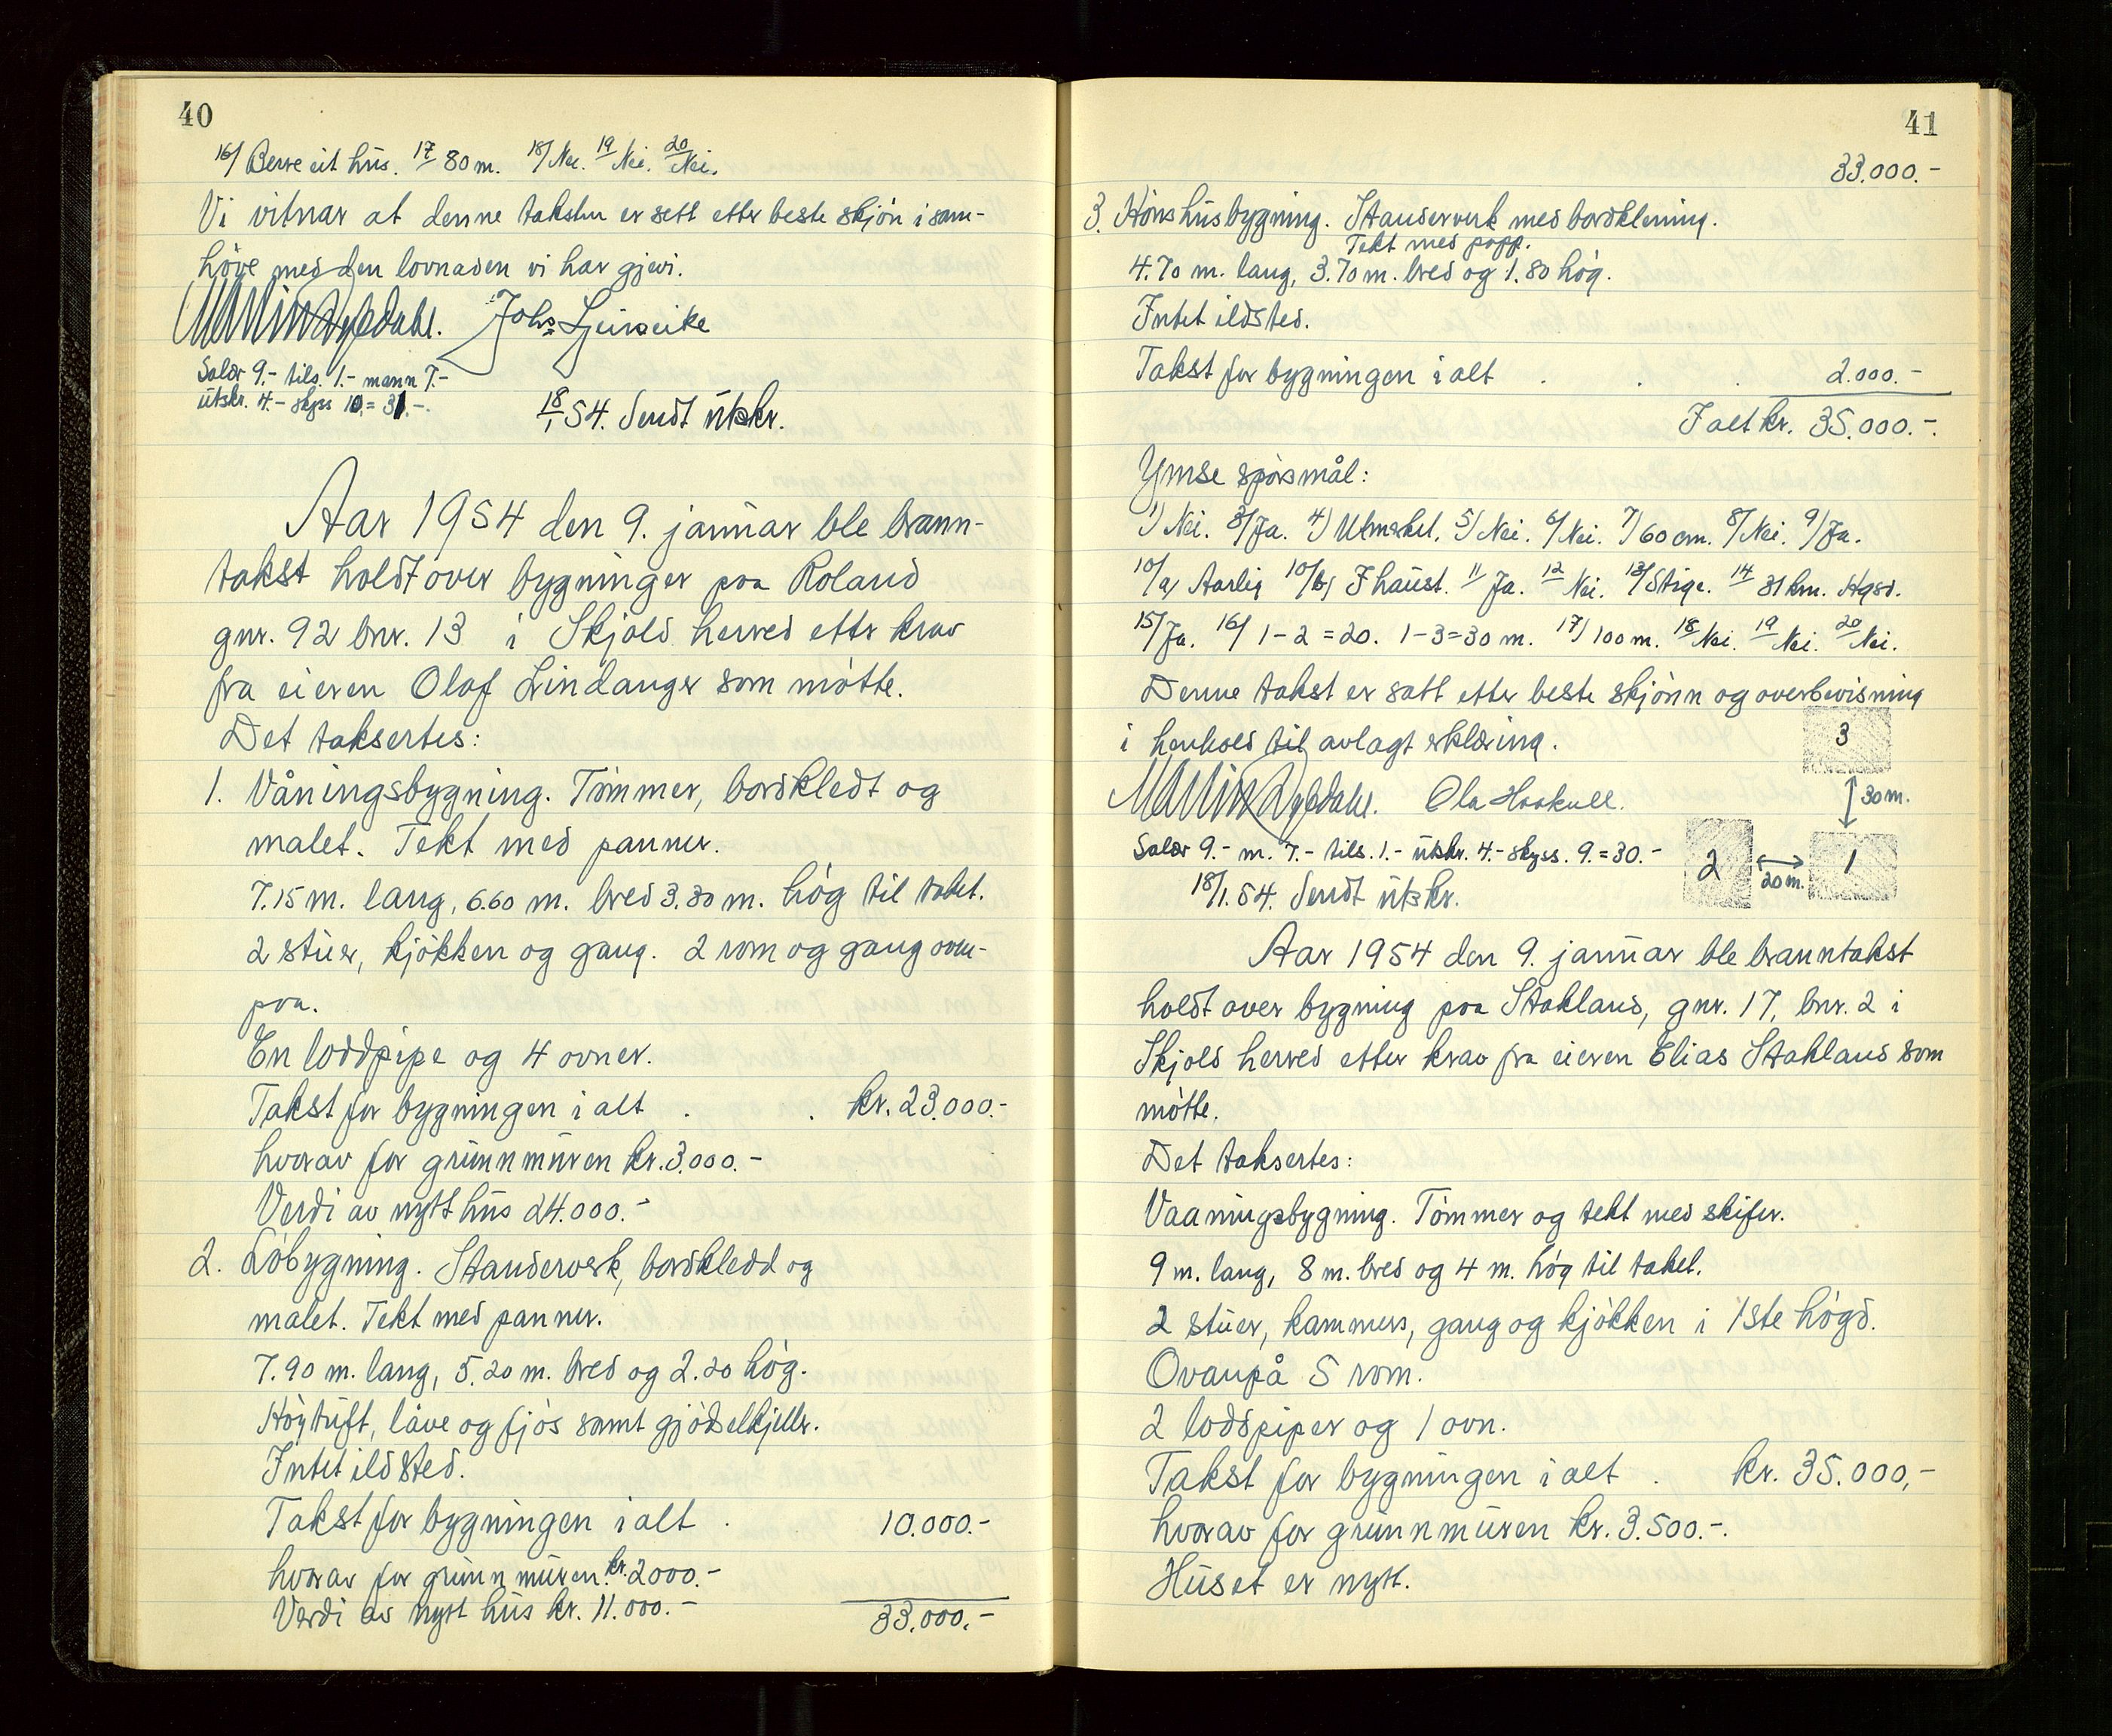 40
16/ Berre eit hus. 17 80 m. 18/ Nei. 19 Nei. 20 Nei.
Vi vitnar at denne taksten er sett etter beste skjön i sam-
höve med den lovnaden vi har gjevi.
Johs
Salær 9.- tils. 1.- mann 7.-
utskr. 4.- skyss 10.= 31.-.
18/1 54. Sendt utskr.
Aar 1954 den 9. januar ble brann-
takst holdt over bygninger paa Roland
gnr. 92 bnr. 13 i Skjold herred etter krav
fra eieren Olaf Lindanger som mötte.
Det taksertes:
1. Våningsbygning. Tömmer, bordkledt og
malet. Tekt med panner.
7.15 m. lang, 6.60 m. bred 3.30 m. hög til taket.
2 stuer, kjökken og gang. 2 rom og gang oven-
paa.
En loddpipe og 4 ovner.
Takst for bygningen i alt . . kr. 23.000.-
hvorav for grunnmuren kr. 3.000.-
Verdi av nytt hus 24.000.-
2. Löbygning. Standerverk, bordkledd og
malet. Tekt med panner.
7.90 m. lang, 5.20 m. bred og 2.20 hög.
Höytuft, låve og fjös samt gjödselkjeller.
Intet ildsted.
Takst for bygningen i alt . 10.000.-
hvorav for grunnmuren. kr. 2000.-
Verdi av nytt hus kr. 11.000.-
33.000.-
41
33.000.-
3. Hönshusbygning. Standerverk med bordkledning.
Tekt med papp.
4.70 m. lang, 3.70 m. bred og 1.80 hög.
Intet ildsted.
Takst for bygningen i alt . . . 2.000.-
I alt kr. 35.000.-.
Ymse spörsmål:
1/ Nei. 3/ Ja. 4/ Utmerket. 5/ Nei. 6/ Nei. 7/ 60 cm. 8/ Nei. 9/ Ja.
10/a/ Aarlig 10/b/ I haust. 11/ Ja. 12 Nei. 13/ Stige. 14 31 km. Hgsd.
15/ Ja. 16/ 1-2 = 20. 1-3 = 30 m. 17/ 100 m. 18 Nei. 19 Nei. 20 Nei.
Denne takst er satt etter beste skjönn og overbevisning
i henhold til avlagt erklæring.
3
30 m.
2
20 m.
1
Ola Haakull.
Salær 9.- m. 7.- tils. 1.- utskr. 4.- skyss. 9. = 30.-
18/1.54. Sendt utskr.
Aar 1954 den 9. januar ble branntakst
holdt over bygning paa Stakland, gnr. 17, bnr. 2 i
Skjold herred etter krav fra eieren Elias Stakland som
mötte.
Det taksertes:
Vaaningsbygning. Tömmer og tekt med skifer.
9 m. lang, 8 m. bred og 4 m. hög til taket.
2 stuer, kammers, gang og kjökken i 1ste högd.
Ovanpå 5 rom.
2 lodspiper og 1 ovn.
Takst for bygningen i alt . kr. 35.000,-
hvorav for grunnmuren kr. 3.500.-.
Huset er nytt.